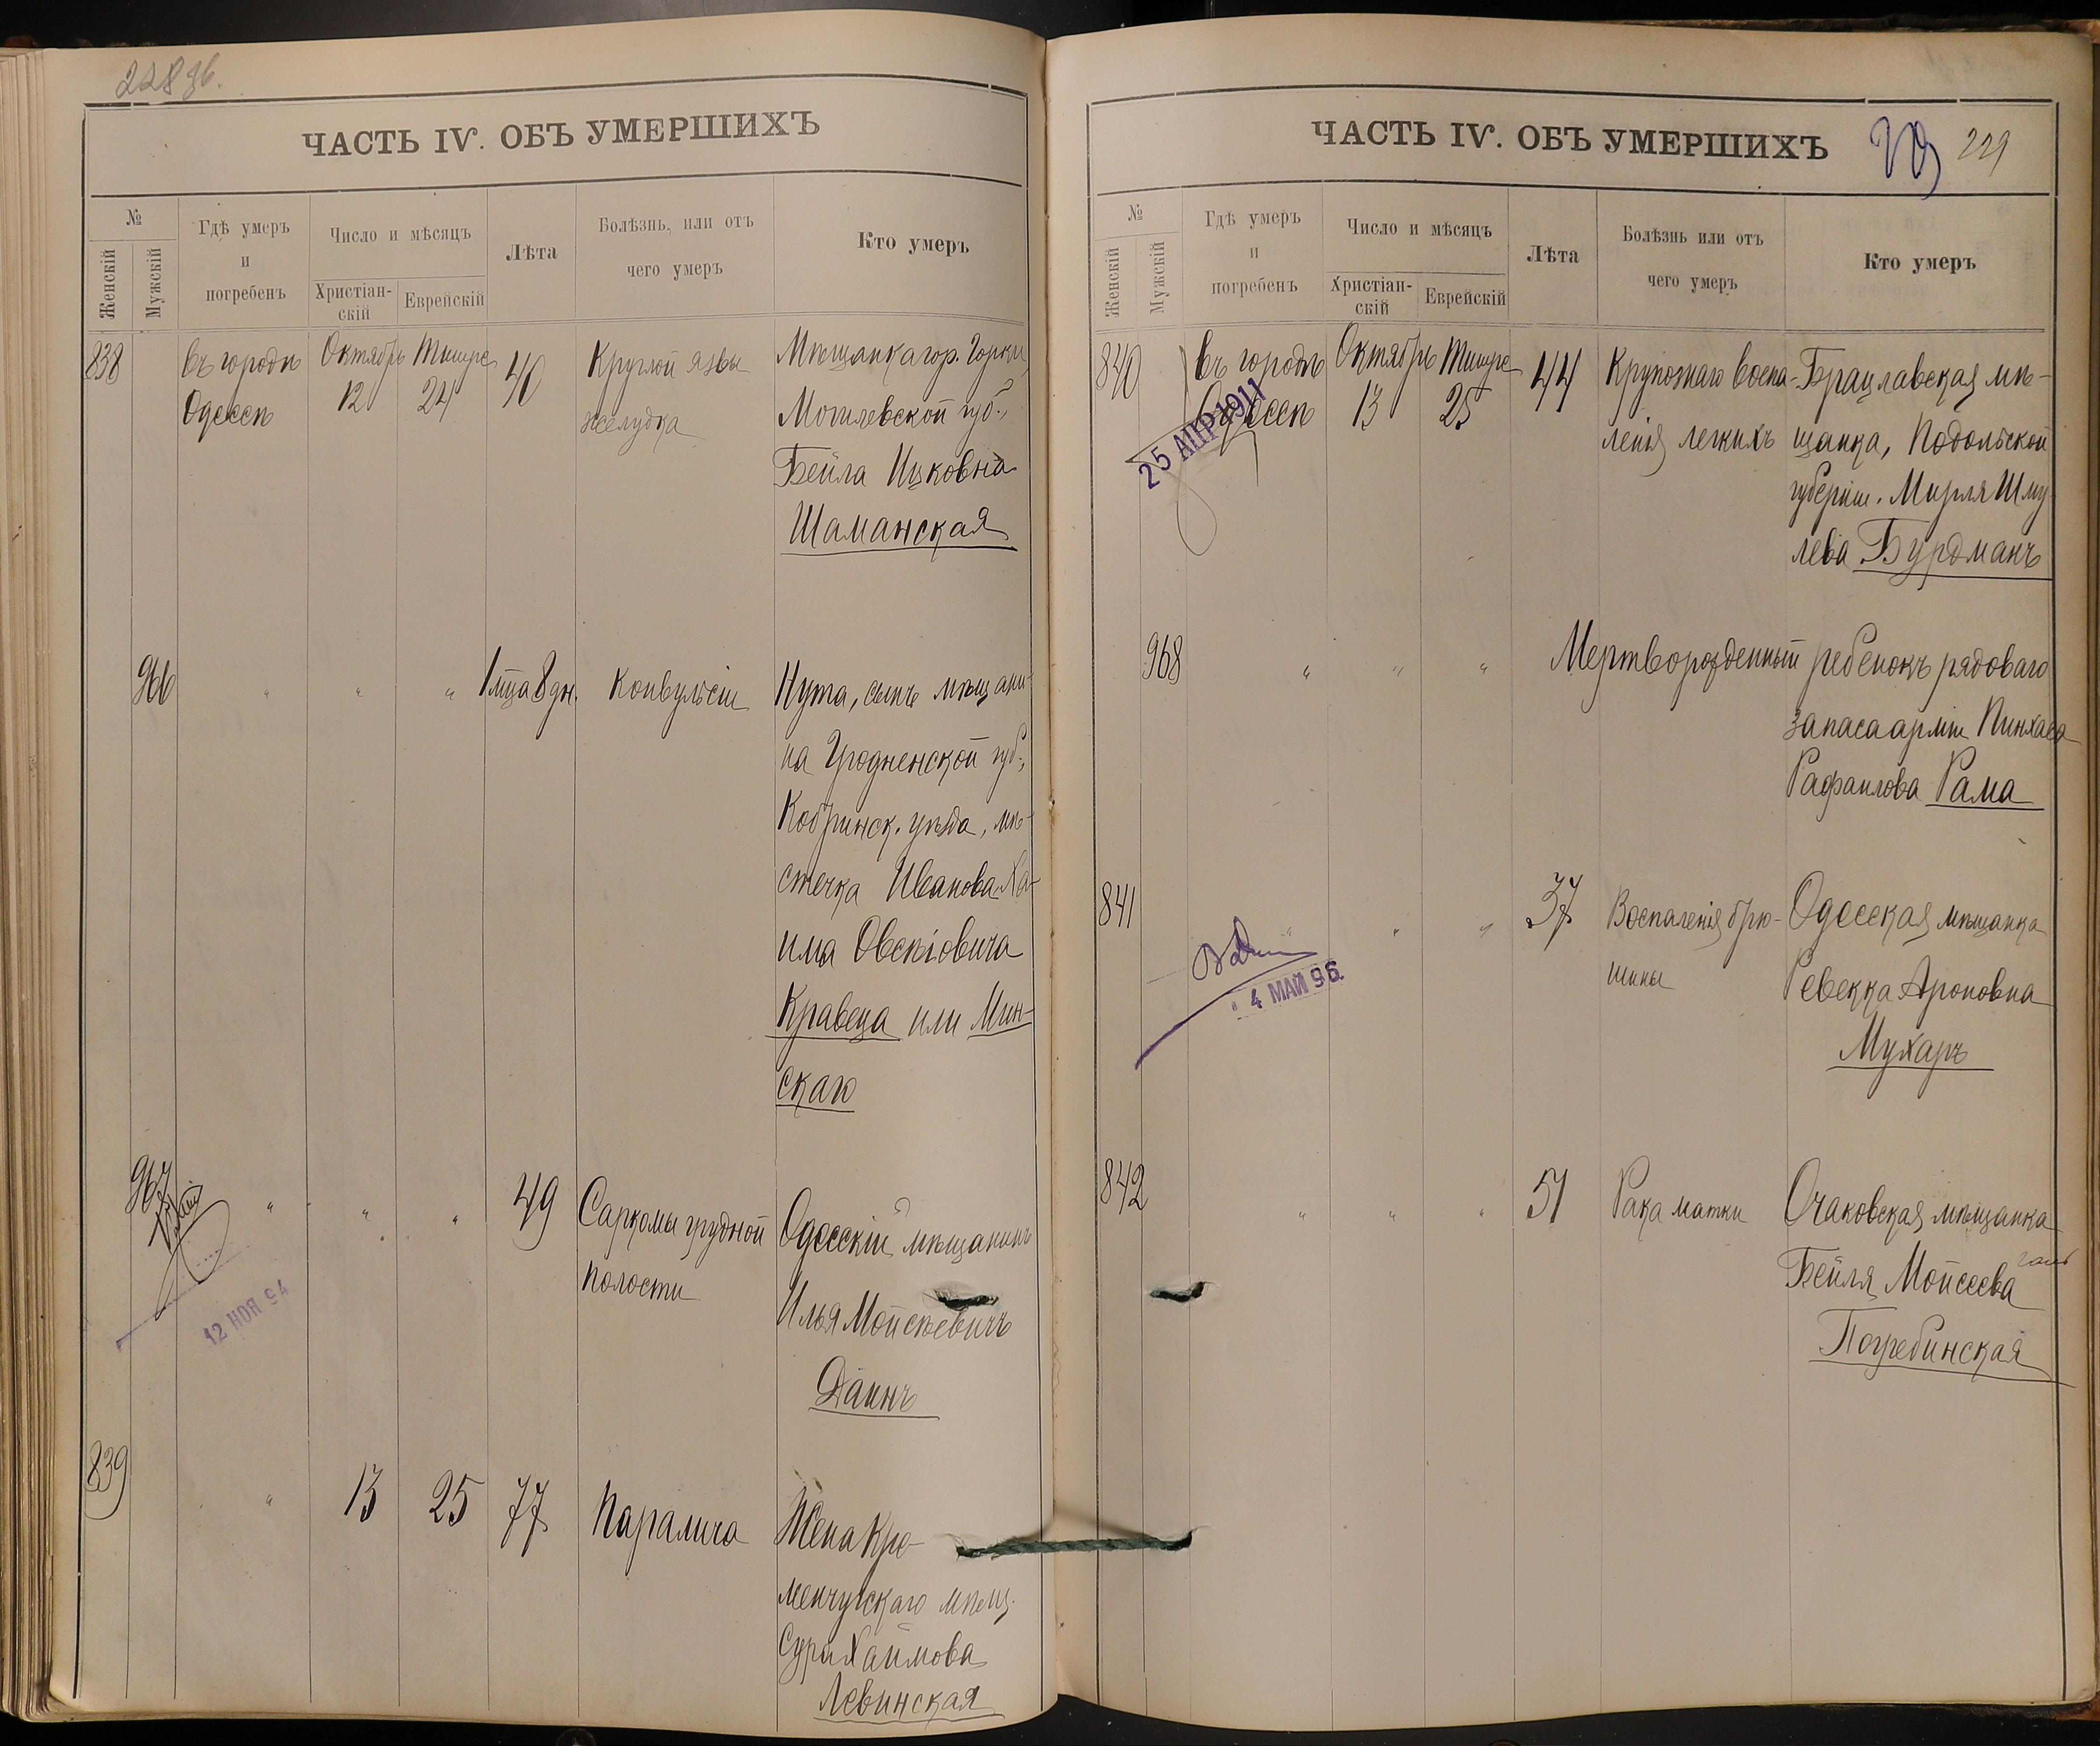 228 об.
ЧАСТЬ IV. ОБЪ УМЕРШИХЪ
№
Женскій
Мужскій
Гдѣ умеръ
и
погребенъ
Число и мѣсяцъ
Христіан-
скій
Еврейскій
Лѣта
Болѣзнь, или отъ
чего умеръ
Кто умеръ
838
въ городѣ
Одессѣ
Октябрь
12
Тишре
24
40
Круглой язвы
желудка
Мѣщанка гор. Горки,
Могилевской губ.,
Бейла Ицковна
Шаманская
966
"
"
"
1 мца 8 дн.
Конвульсіи
Нута, сынъ мѣщани-
на Гродненской губ.,
Кобринск. уѣзда, мѣ-
стечка Иванова Ха-
има Овсѣіовича
Кравеца или Мин-
скаго
967
12 НОЯ 94
"
"
"
49
Саркомы грудной
полости
Одесскій мѣщанинъ
Илья Мойсѣевичъ
Даинъ
839
"
13
25
77
Паралича
Жена Кре-
менчугскаго мѣщ.
Сура Хаимова
Левинская
ЧАСТЬ IV. ОБЪ УМЕРШИХЪ
229
№
Женскій
Мужскій
Гдѣ умеръ
и
погребенъ
Число и мѣсяцъ
Христіан-
скій
Еврейскій
Лѣта
Болѣзнь или отъ
чего умеръ
Кто умеръ
840
въ городѣ
Одессѣ
25 АПР 1911
Октябрь
13
Тишре
25
44
Крупознаго воспа-
ленія легкихъ
Брацлавская мѣ-
щанка, Подольской
губерніи. Мирля Шму-
лева Бурдманъ
968
"
"
"
Мертворожденный ребенокъ рядоваго
запаса арміи Пинхаса
Рафаилова Рама
841
4 МАЙ 96.
"
"
"
37
Воспаленія брю-
шины
Одесская мѣщанка
Ревекка Ароновна
Мухаръ
842
"
"
"
51
Рака матки
Очаковская мѣщанка
Бейля Мойсеева
Погребинская